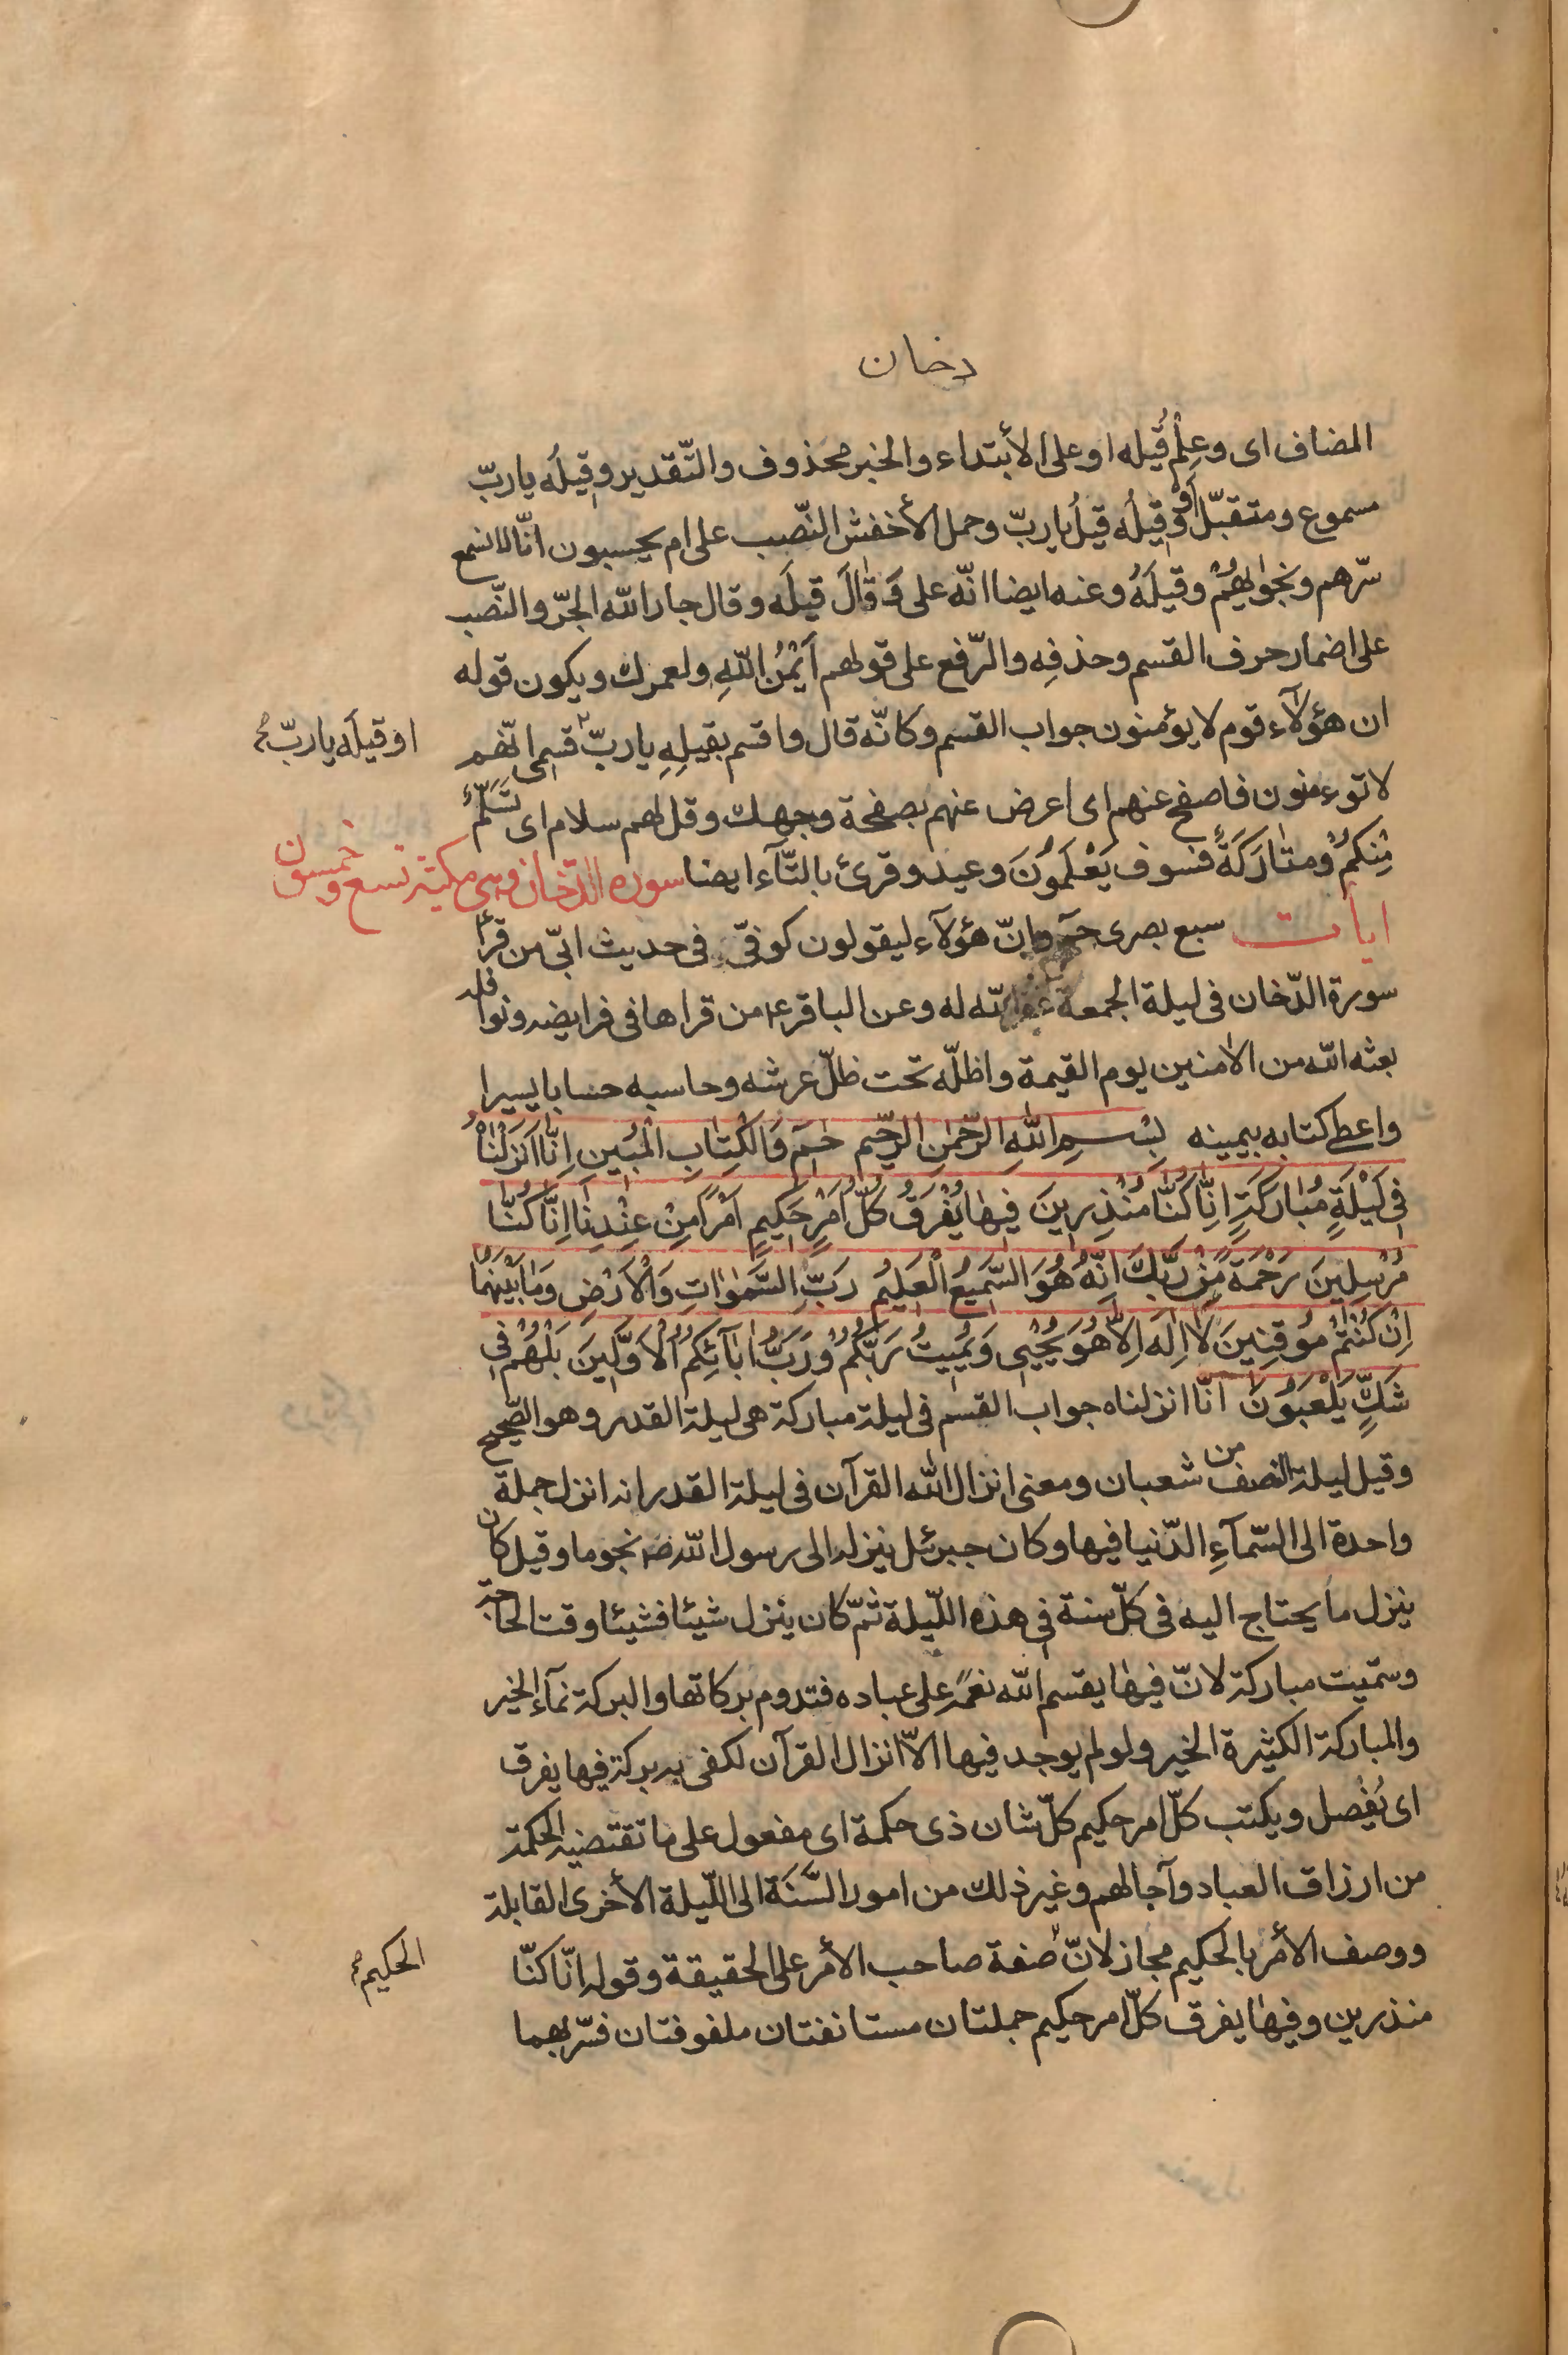 دخان
المضاف اى وعِلْم قِيله او على الأبتداء والخبر محذوف والتّقدير وقيلُه ياربّ
مسموع ومتقبّل أوْ وقيلُه قيلُ ياربّ وحمل الأخفش النّصب على ام يحسبون انّا لا نسمع
سّرهم ونجوٰيهُمْ وقيلَهُ وعنه ايضا انّه على وَ قٰالَ قيلَه وقال جار الله الجرّ والنّصب
على اضمار حرف القسم وحذفِه والرّفع على قولهم اَيْمُنُ اللّهِ ولعمرك ويكون قوله
ان هؤلآء قوم لا يؤمنون جواب القسم وكانّه قال واقسم بقيلِهِ ياربّ قسمى انّهم
او قيلَه ياربّ
لا يؤمنون فاصفح عنهم اى اعرض عنهم بصفحة وجهك وقل لهم سلام اى تسَلّم
مِنكُمْ ومتٰارَكَةً فسوف يَعْلَمُونَ وعيد وقرئ بالتّآء ايضا سوره الدّخان وهى مكيّة تسع وخمسون
ايات سبع بصرى حمٓ وانّ هؤلآء ليقولون كوفىّ فى حديث ابىّ من قرأ
سورة الدّخان فى ليلة الجمعة غفر الله له وعن الباقر ع من قراها فى فرايضه ونوافله
بعثه الله من الامنين يوم القيمة واظلّه تحت ظلّ عرشه وحاسبه حسابا يسيرا
واعطى كتابه بيمينه بِسْمِ اللّٰهِ الرَّحْمٰنِ الرَّحيم حٰمٓ وَالْكِتٰابِ الْمُبينِ اِنّٰا اَنْزَلْنٰاهُ
فى لَيْلَةٍ مُبٰارَكَةٍ اِنّٰا كُنّٰا مُنْذِرينَ فيهٰا يُفْرَقُ كُلُّ اَمْرٍ حَكيمٍ اَمْراً مِنْ عِنْدِنٰا اِنّٰا كُنّٰا
مُرْسِلينَ رَحْمَةً مِنْ رَبِّكَ اِنَّهُ هُوَ السَّميعُ الْعَليمُ رَبِّ السَّمٰوٰاتِ وَالْاَرْضِ وَمٰا بَيْنَهُمٰا
اِنْ كُنْتُمْ مُوقِنينَ لٰا اِلٰهَ اِلّٰا هُوَ يُحْيى وَيُميتُ رَبُّكُمْ وَرَبُّ اٰبٰآئِكُمُ الْاَوَّلينَ بَلْ هُمْ فى
شَكٍّ يَلْعَبُونَ انّا انزلناه جواب القسم فى ليلة مباركة هى ليلة القدر وهو الصّحيح
وقيل ليلة النصف من شعبان ومعنى انزال الله القرآن فى ليلة القدر انه انزل جملة
واحدة الى السّمآءِ الدّنيا فيها وكان جبرئل ينزله الى رسول الله ص نجوما وقيل كان
ينزل ما يحتاج اليه فى كلّ سنة فى هذه اللّيلة ثمّ كان ينزل شيئا فشيئا وقت الحاجة
وسمّيت مباركة لانّ فيها يقسم الله نعمَه على عباده فتدوم بركاتها والبركة نمآء الخير
والمباركة الكثيرة الخير ولو لم يوجد فيها الاّ انزال القرآن لكفى به بركة فيها يفرق
اى يُفْصل ويكتب كلّ امر حكيم كلّ شان ذى حكمة اى مفعول على ما تقتضيه الحكمة
من ارزاق العباد وآجالهم وغير ذلك من امور السَّنَة الى اللّيلة الأخرى القابلة
ووصف الأمر بالحكيم مجاز لانّ صفة صاحب الأمر على الحقيقة وقوله انّا كنّا
الحكيم
منذرين وفيها يفرق كلّ امر حكيم جملتان مستانفتان ملفوفتان فسّر بهما